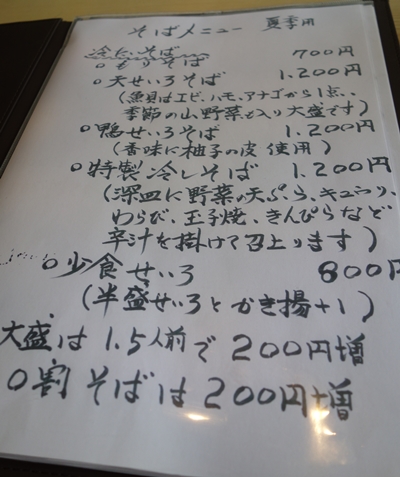 そばメニュー 夏季用
冷たいそば
○もりそば 700円
○天せいろそば 1.200円
(魚貝はエビ、ハモ、アナゴから1点、、
季節の山野菜も入り大盛です)
○鴨せいろそば 1.200円
(香味に柚子の皮使用)
○特製冷しそば 1.200円
(深皿に野菜の天ぷら、キュウリ、
わらび、玉子焼、きんぴらなど
辛汁を掛けて召上ります)
○少食せいろ 800円
(半盛せいろとかき揚+1)
大盛は1.5人前で200円増
○割そばは200円増